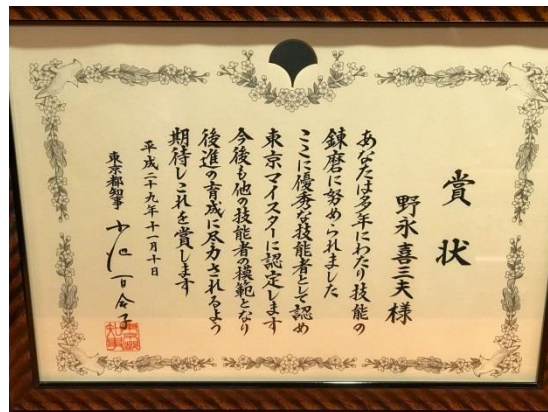 賞状
野永喜三夫様
あなたは多年にわたり技能の
錬磨に努められました
ここに優秀な技能者として認め
東京マイスターに認定します
今後も他の技能者の模範となり
後進の育成に尽力されるよう
期待しこれを賞します
平成二十九年十一月十日
東京都知事 小池百合子